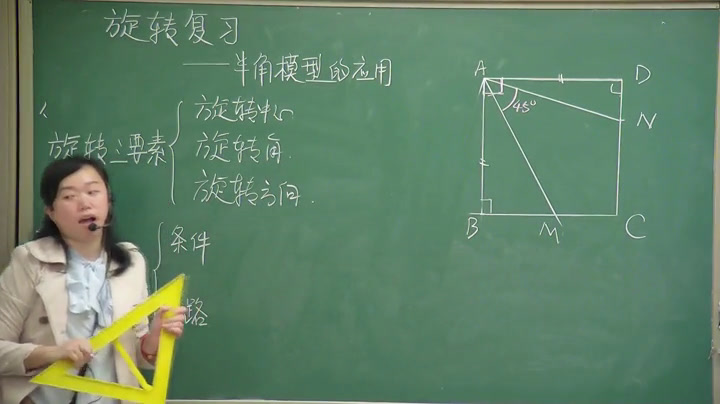 旋转复习
——半角模型的应用
旋转三要素
旋转中心
旋转角
旋转方向.
条件
路
A
D
45°
N
B
M
C